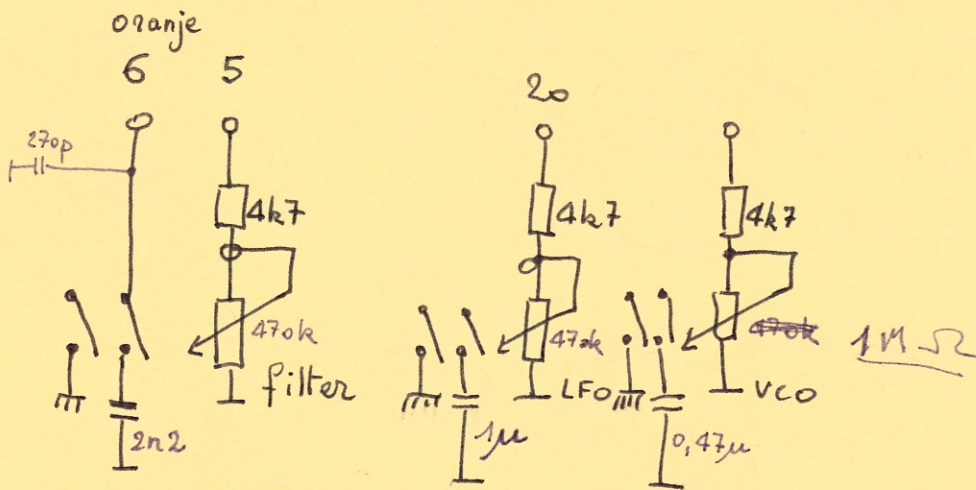 oranje
6 5 20
270p
4k7 4k7 4k7
470k 470k 470k 1M Ω
filter LFO VCO
2n2 1µ 0,47µ